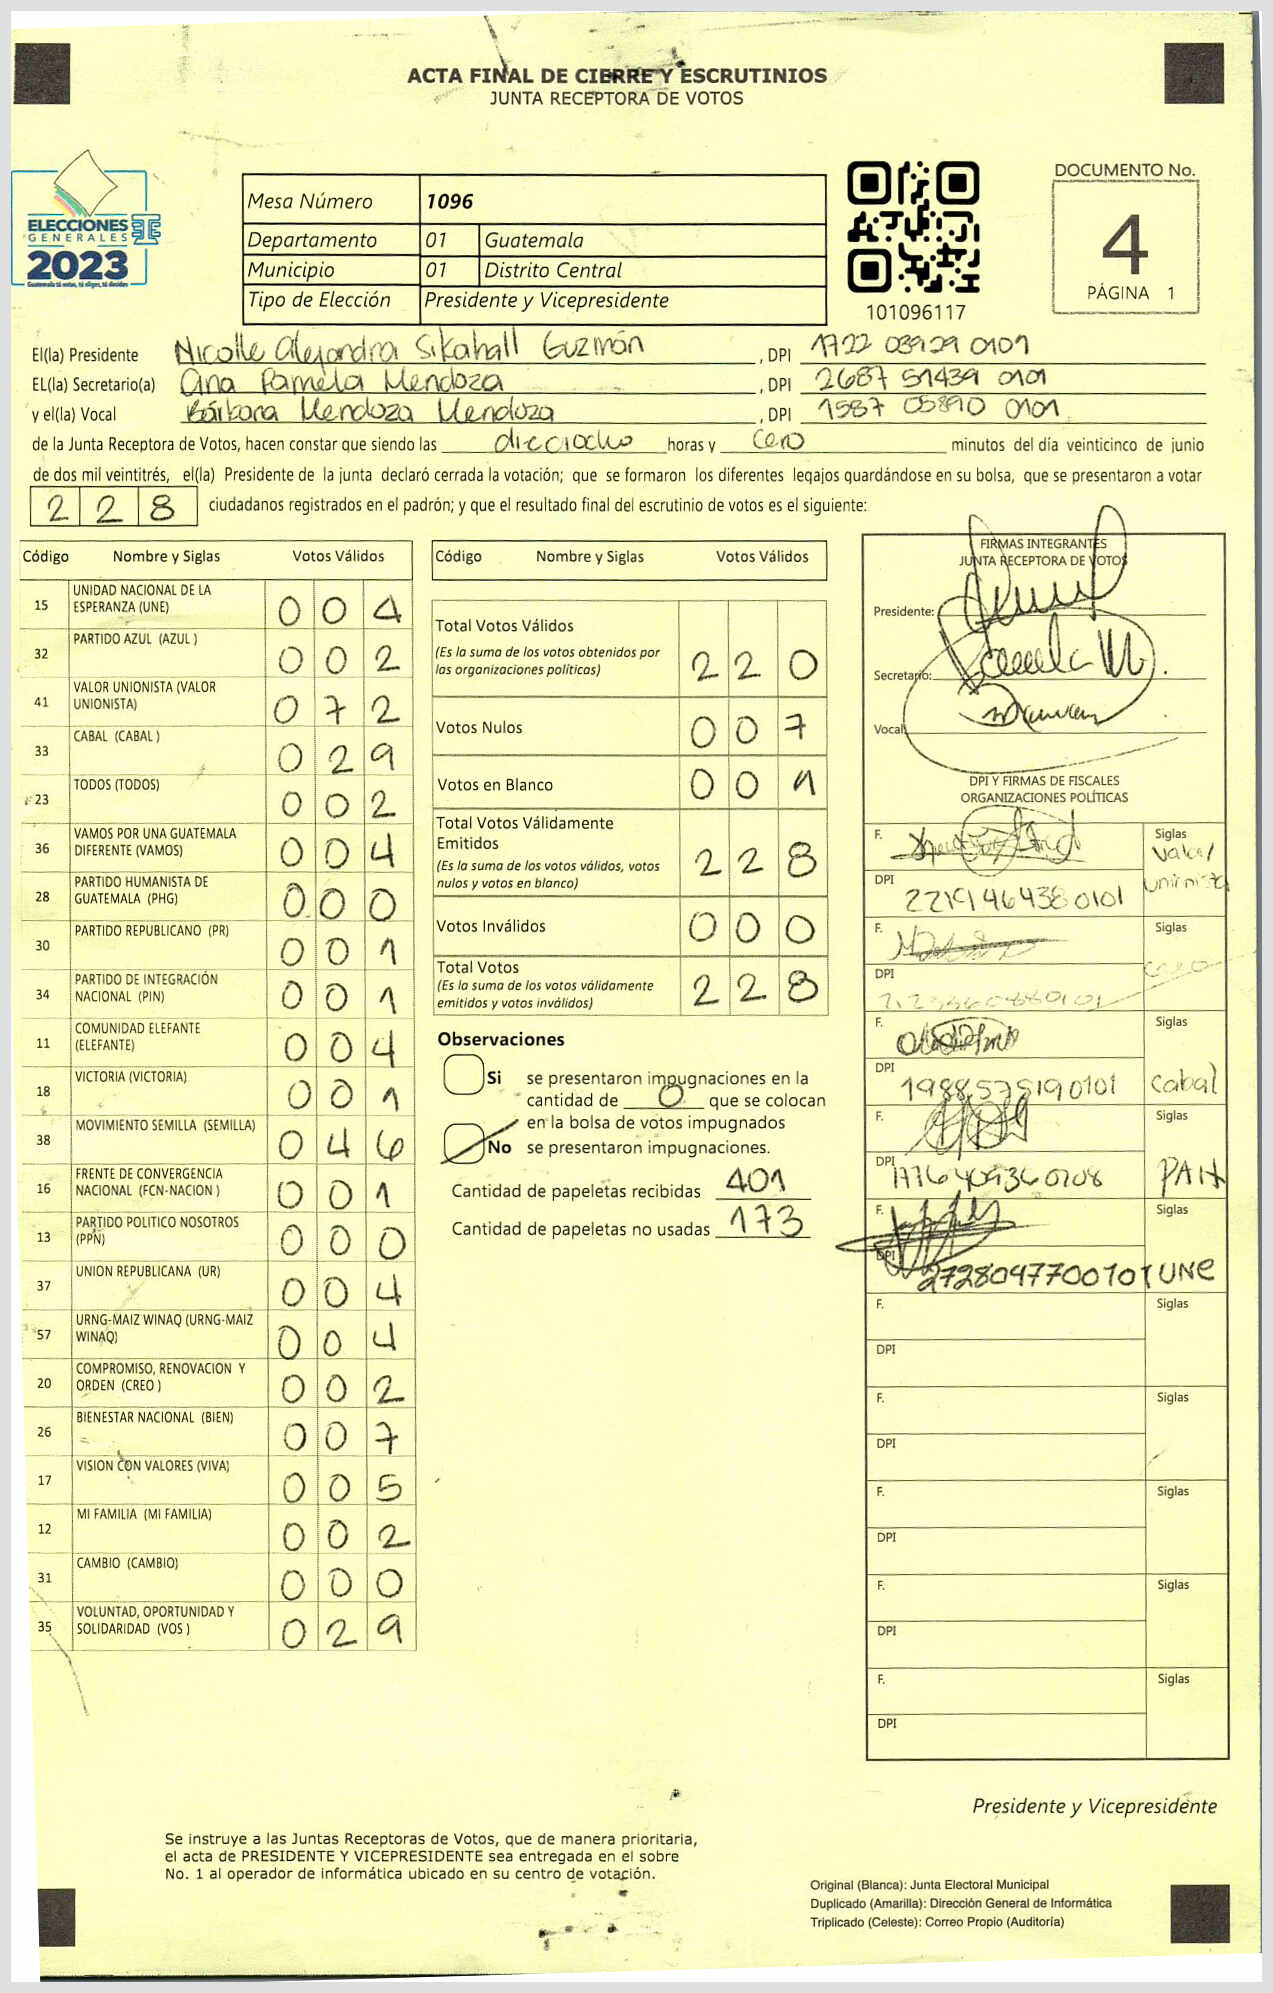 ACTA FINAL DE CIERRE Y ESCRUTINIOS
JUNTA RECEPTORA DE VOTOS
ELECCIONES
GENERALES
2023
Guatemala tú votas, tú eliges, tú decides
Mesa Número 1096
Departamento 01 Guatemala
Municipio 01 Distrito Central
Tipo de Elección Presidente y Vicepresidente
101096117
DOCUMENTO No.
4
PÁGINA 1
El(la) Presidente Nicolle Alejandra Sikahall Guzmán, DPI 1722 03929 0101
EL(la) Secretario(a) Ana Pamela Mendoza, DPI 2687 51439 0101
y el(la) Vocal Bárbara Mendoza Mendoza, DPI 1587 05890 0101
de la Junta Receptora de Votos, hacen constar que siendo las dieciocho horas y cero minutos del día veinticinco de junio
de dos mil veintitrés, el(la) Presidente de la junta declaró cerrada la votación; que se formaron los diferentes legajos guardándose en su bolsa, que se presentaron a votar
228 ciudadanos registrados en el padrón; y que el resultado final del escrutinio de votos es el siguiente:
Código Nombre y Siglas Votos Válidos
15 UNIDAD NACIONAL DE LA ESPERANZA (UNE) 004
32 PARTIDO AZUL (AZUL ) 002
41 VALOR UNIONISTA (VALOR UNIONISTA) 072
33 CABAL (CABAL ) 029
23 TODOS (TODOS) 002
36 VAMOS POR UNA GUATEMALA DIFERENTE (VAMOS) 004
28 PARTIDO HUMANISTA DE GUATEMALA (PHG) 000
30 PARTIDO REPUBLICANO (PR) 001
34 PARTIDO DE INTEGRACIÓN NACIONAL (PIN) 001
11 COMUNIDAD ELEFANTE (ELEFANTE) 004
18 VICTORIA (VICTORIA) 001
38 MOVIMIENTO SEMILLA (SEMILLA) 046
16 FRENTE DE CONVERGENCIA NACIONAL (FCN-NACION ) 001
13 PARTIDO POLITICO NOSOTROS (PPN) 000
37 UNION REPUBLICANA (UR) 004
57 URNG-MAIZ WINAQ (URNG-MAIZ WINAQ) 004
20 COMPROMISO, RENOVACION Y ORDEN (CREO ) 002
26 BIENESTAR NACIONAL (BIEN) 007
17 VISION CON VALORES (VIVA) 005
12 MI FAMILIA (MI FAMILIA) 002
31 CAMBIO (CAMBIO) 000
35 VOLUNTAD, OPORTUNIDAD Y SOLIDARIDAD (VOS ) 029
Código Nombre y Siglas Votos Válidos
Total Votos Válidos
(Es la suma de los votos obtenidos por las organizaciones políticas) 220
Votos Nulos 007
Votos en Blanco 001
Total Votos Válidamente Emitidos
(Es la suma de los votos válidos, votos nulos y votos en blanco) 228
Votos Inválidos 000
Total Votos
(Es la suma de los votos válidamente emitidos y votos inválidos) 228
Observaciones
Si se presentaron impugnaciones en la
cantidad de 0 que se colocan
en la bolsa de votos impugnados
No se presentaron impugnaciones.
Cantidad de papeletas recibidas 401
Cantidad de papeletas no usadas 173
FIRMAS INTEGRANTES
JUNTA RECEPTORA DE VOTOS
Presidente:
Secretario:
Vocal:
DPI Y FIRMAS DE FISCALES
ORGANIZACIONES POLÍTICAS
F. Siglas Valor Unionista
DPI 2219464380101
F. Siglas creo
DPI
F. Siglas cabal
DPI 1988575190101
F. Siglas PAH
DPI
F. Siglas UNE
DPI 2728047700101
F. Siglas
DPI
F. Siglas
DPI
F. Siglas
DPI
F. Siglas
DPI
F. Siglas
DPI
Presidente y Vicepresidente
Se instruye a las Juntas Receptoras de Votos, que de manera prioritaria,
el acta de PRESIDENTE Y VICEPRESIDENTE sea entregada en el sobre
No. 1 al operador de informática ubicado en su centro de votación.
Original (Blanca): Junta Electoral Municipal
Duplicado (Amarilla): Dirección General de Informática
Triplicado (Celeste): Correo Propio (Auditoría)